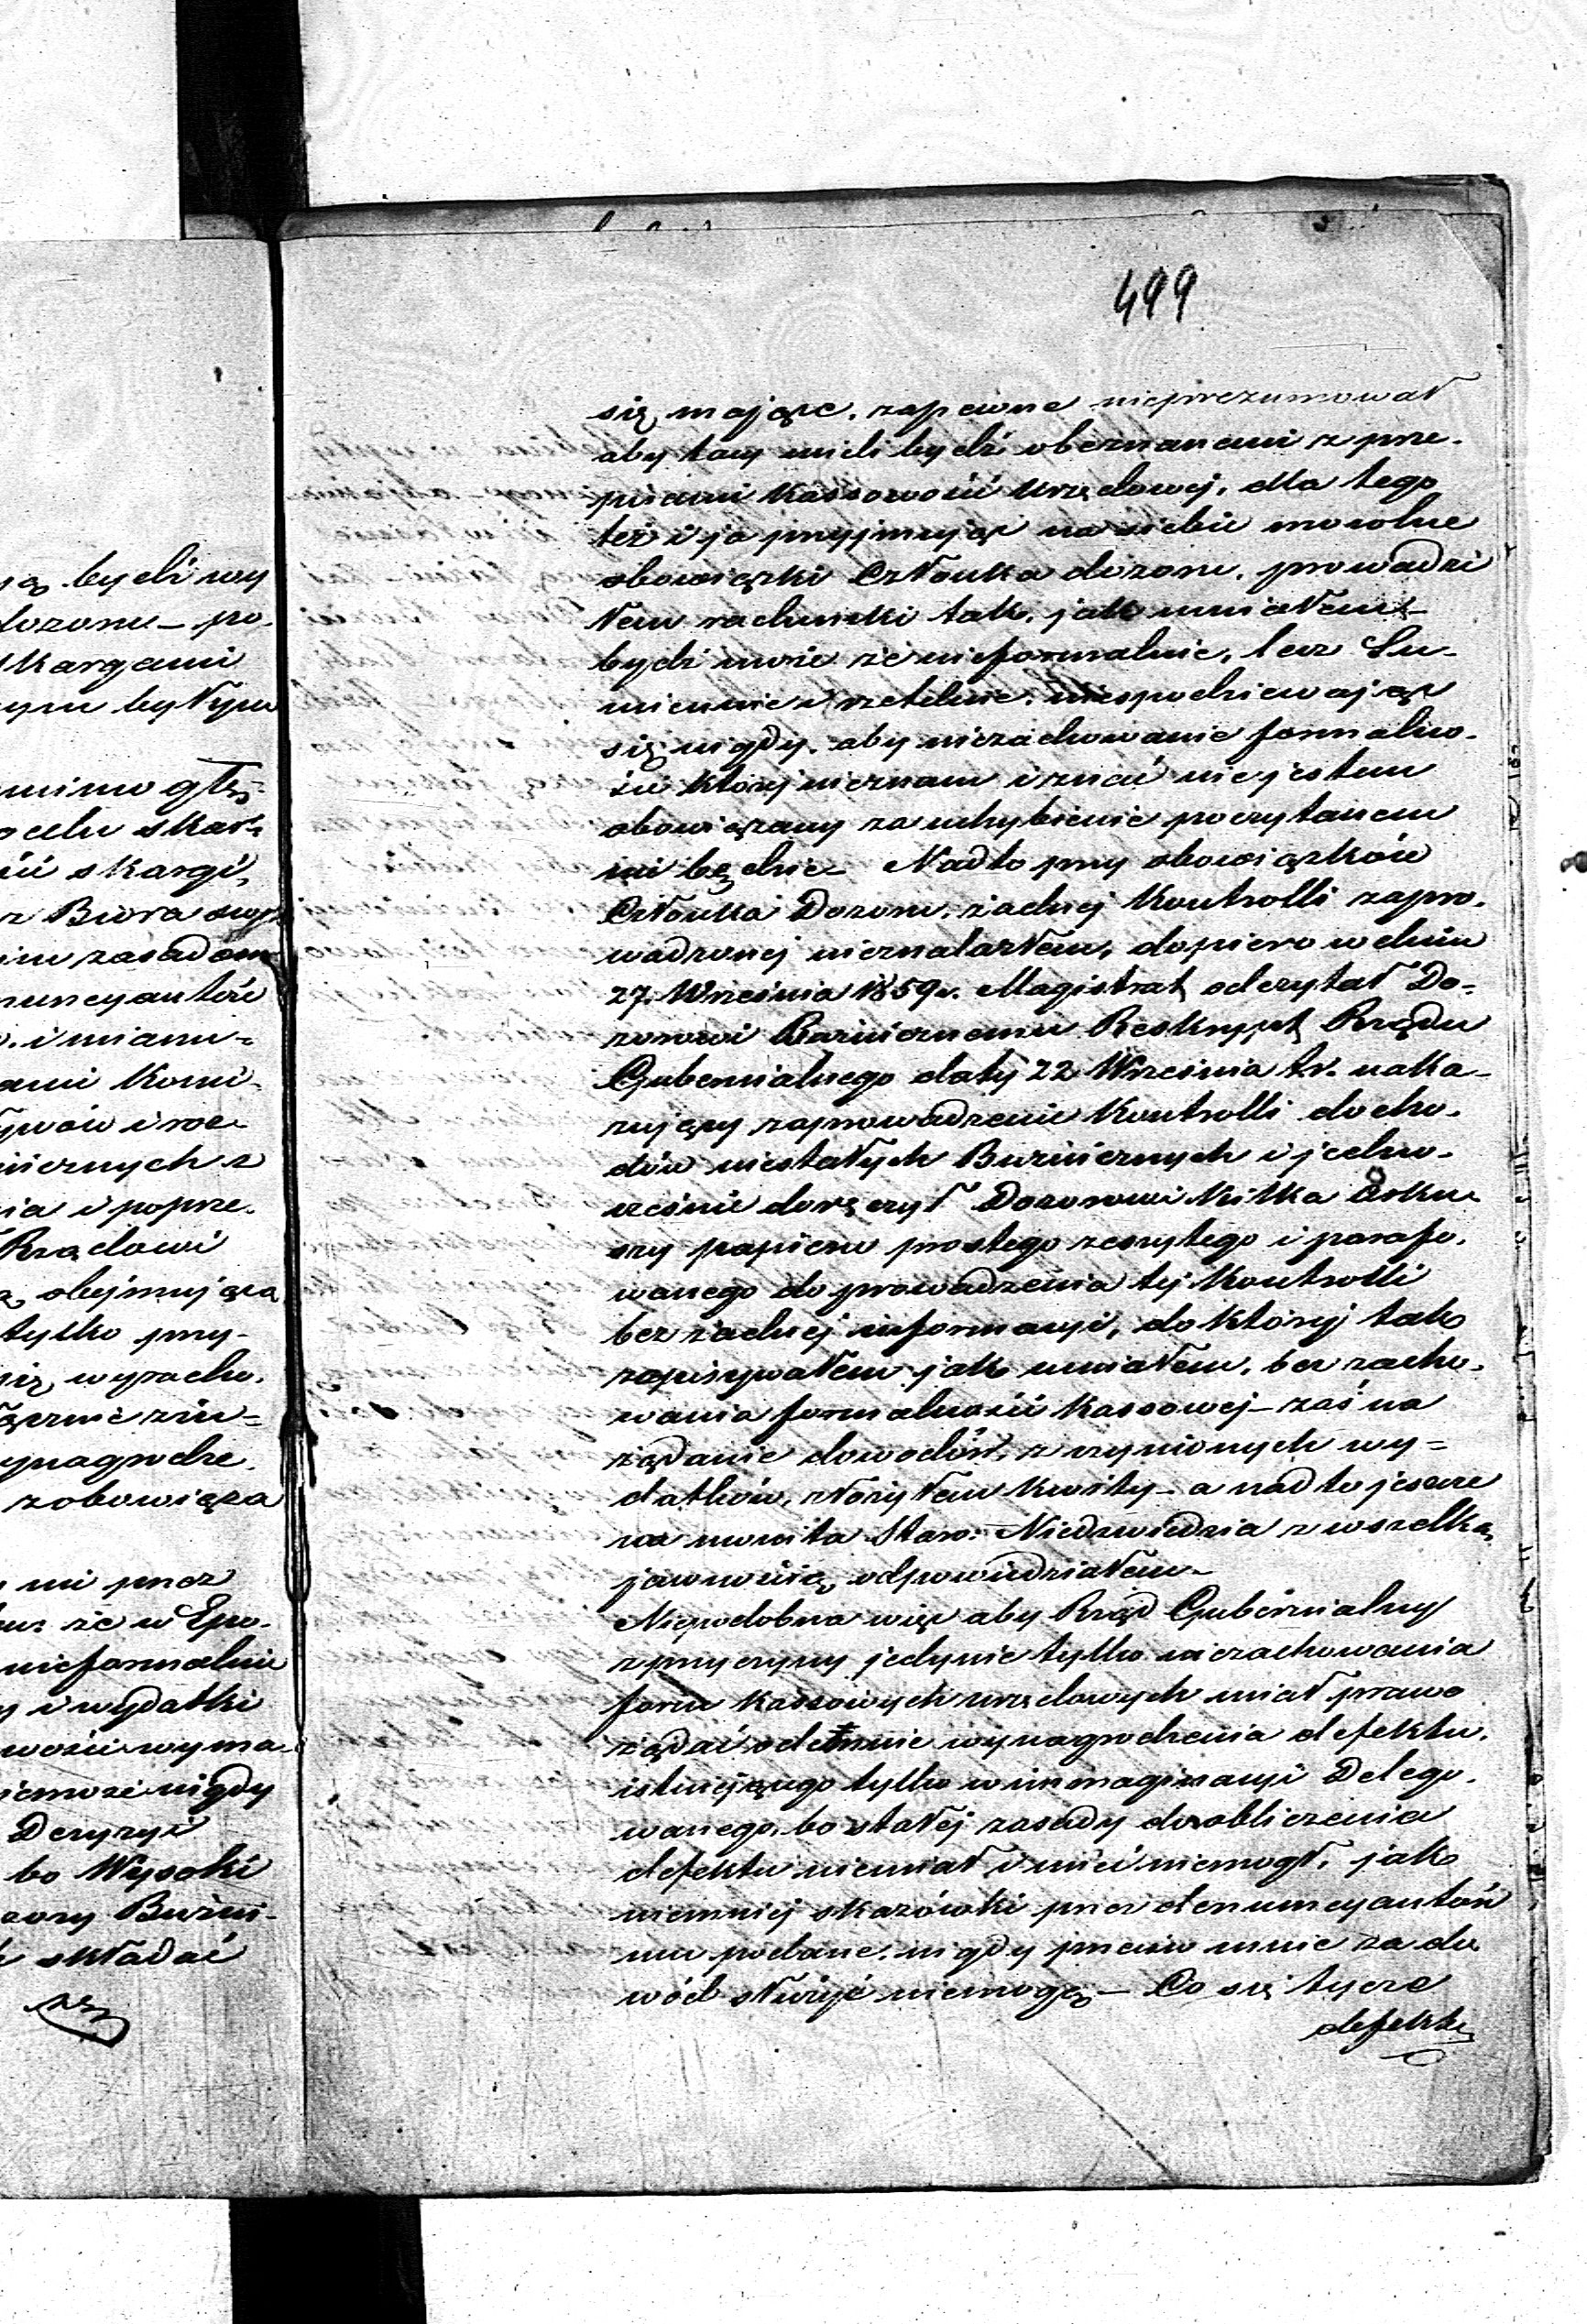 499
się mające, zapewne nieprezumował
aby tacy mieli bydź obeznanemi z prze-
pisami Kassowości Urzędowej, dla tego
też i ja przyjmując na siebie mozolne
obowiązki Członka dozoru, prowadzi
łem rachunki tak, jak umiałem
bydź może że nieformalnie, lecz Su-
miennie i rzetelnie, niespodziewając
się nigdy, aby niezachowanie formalno-
ści której nieznam i znać nie jestem
obowiązany za uchybienie poczytanem
mi będzie – Nadto przy obowiązków
Członka Dozoru, żadnej Kontrolli zapro-
wadzonej nieznalazłem, dopiero w dniu
27. Września 1859 r. Magistrat odczytał Do-
zorowi Bożniczemu Reskrypt Rządu
Gubernialnego daty 22 Września t.r. naka-
zujący zaprowadzenie Kontrolli docho-
dów niestałych Bużniczych i jedno-
cześnie doręczył Dozorowi kilka arku-
szy papieru prostego zeszytego i parafo-
wanego do prowadzenia tej Kontrolli
bez żadnej informacyi, do której tak
zapisywałem jak umiałem, bez zacho-
wania formalności Kassowej – zaś na
żądanie dowodów, z czynionych wy=
datków, złożyłem Kwity – a nadto jeszcze
na Staro: Niedzwiedzia z wszelką
jawnością odpowiedziałem –
Niepodobna więc aby Rząd Gubernialny
z przyczyny jedynie tylko niezachowania
form Kassowych urzędowych miał prawo
żądać odemnie wynagrodzenia defektu,
istniejącego tylko w immaginacyi Delego-
wanego, bo stałej zasady do obliczenia
defektu niemiał i mieć niemógł, jako
niemniej skazówki przez denuncyantów
mu podane, nigdy przeciw mnie za do
wód służyć niemogą – Co się tycze
defektu
są bydź wy
dozoru – po-
skargami
głę=
celu skar=
skargi,
z Biura swego
zasadom
denuncyantów
i miano=
Komi-
i roz-
z
i poprze-
Rządowi
obejmująca
tylko przy-
się wyracho-
ynagrodze-
zobowiąza
mi przez
że w Epo-
nieformalnie
i wydatki
wyma-
niemoże nigdy
Decyzyi
bo Wysoki
Bużni-
składać